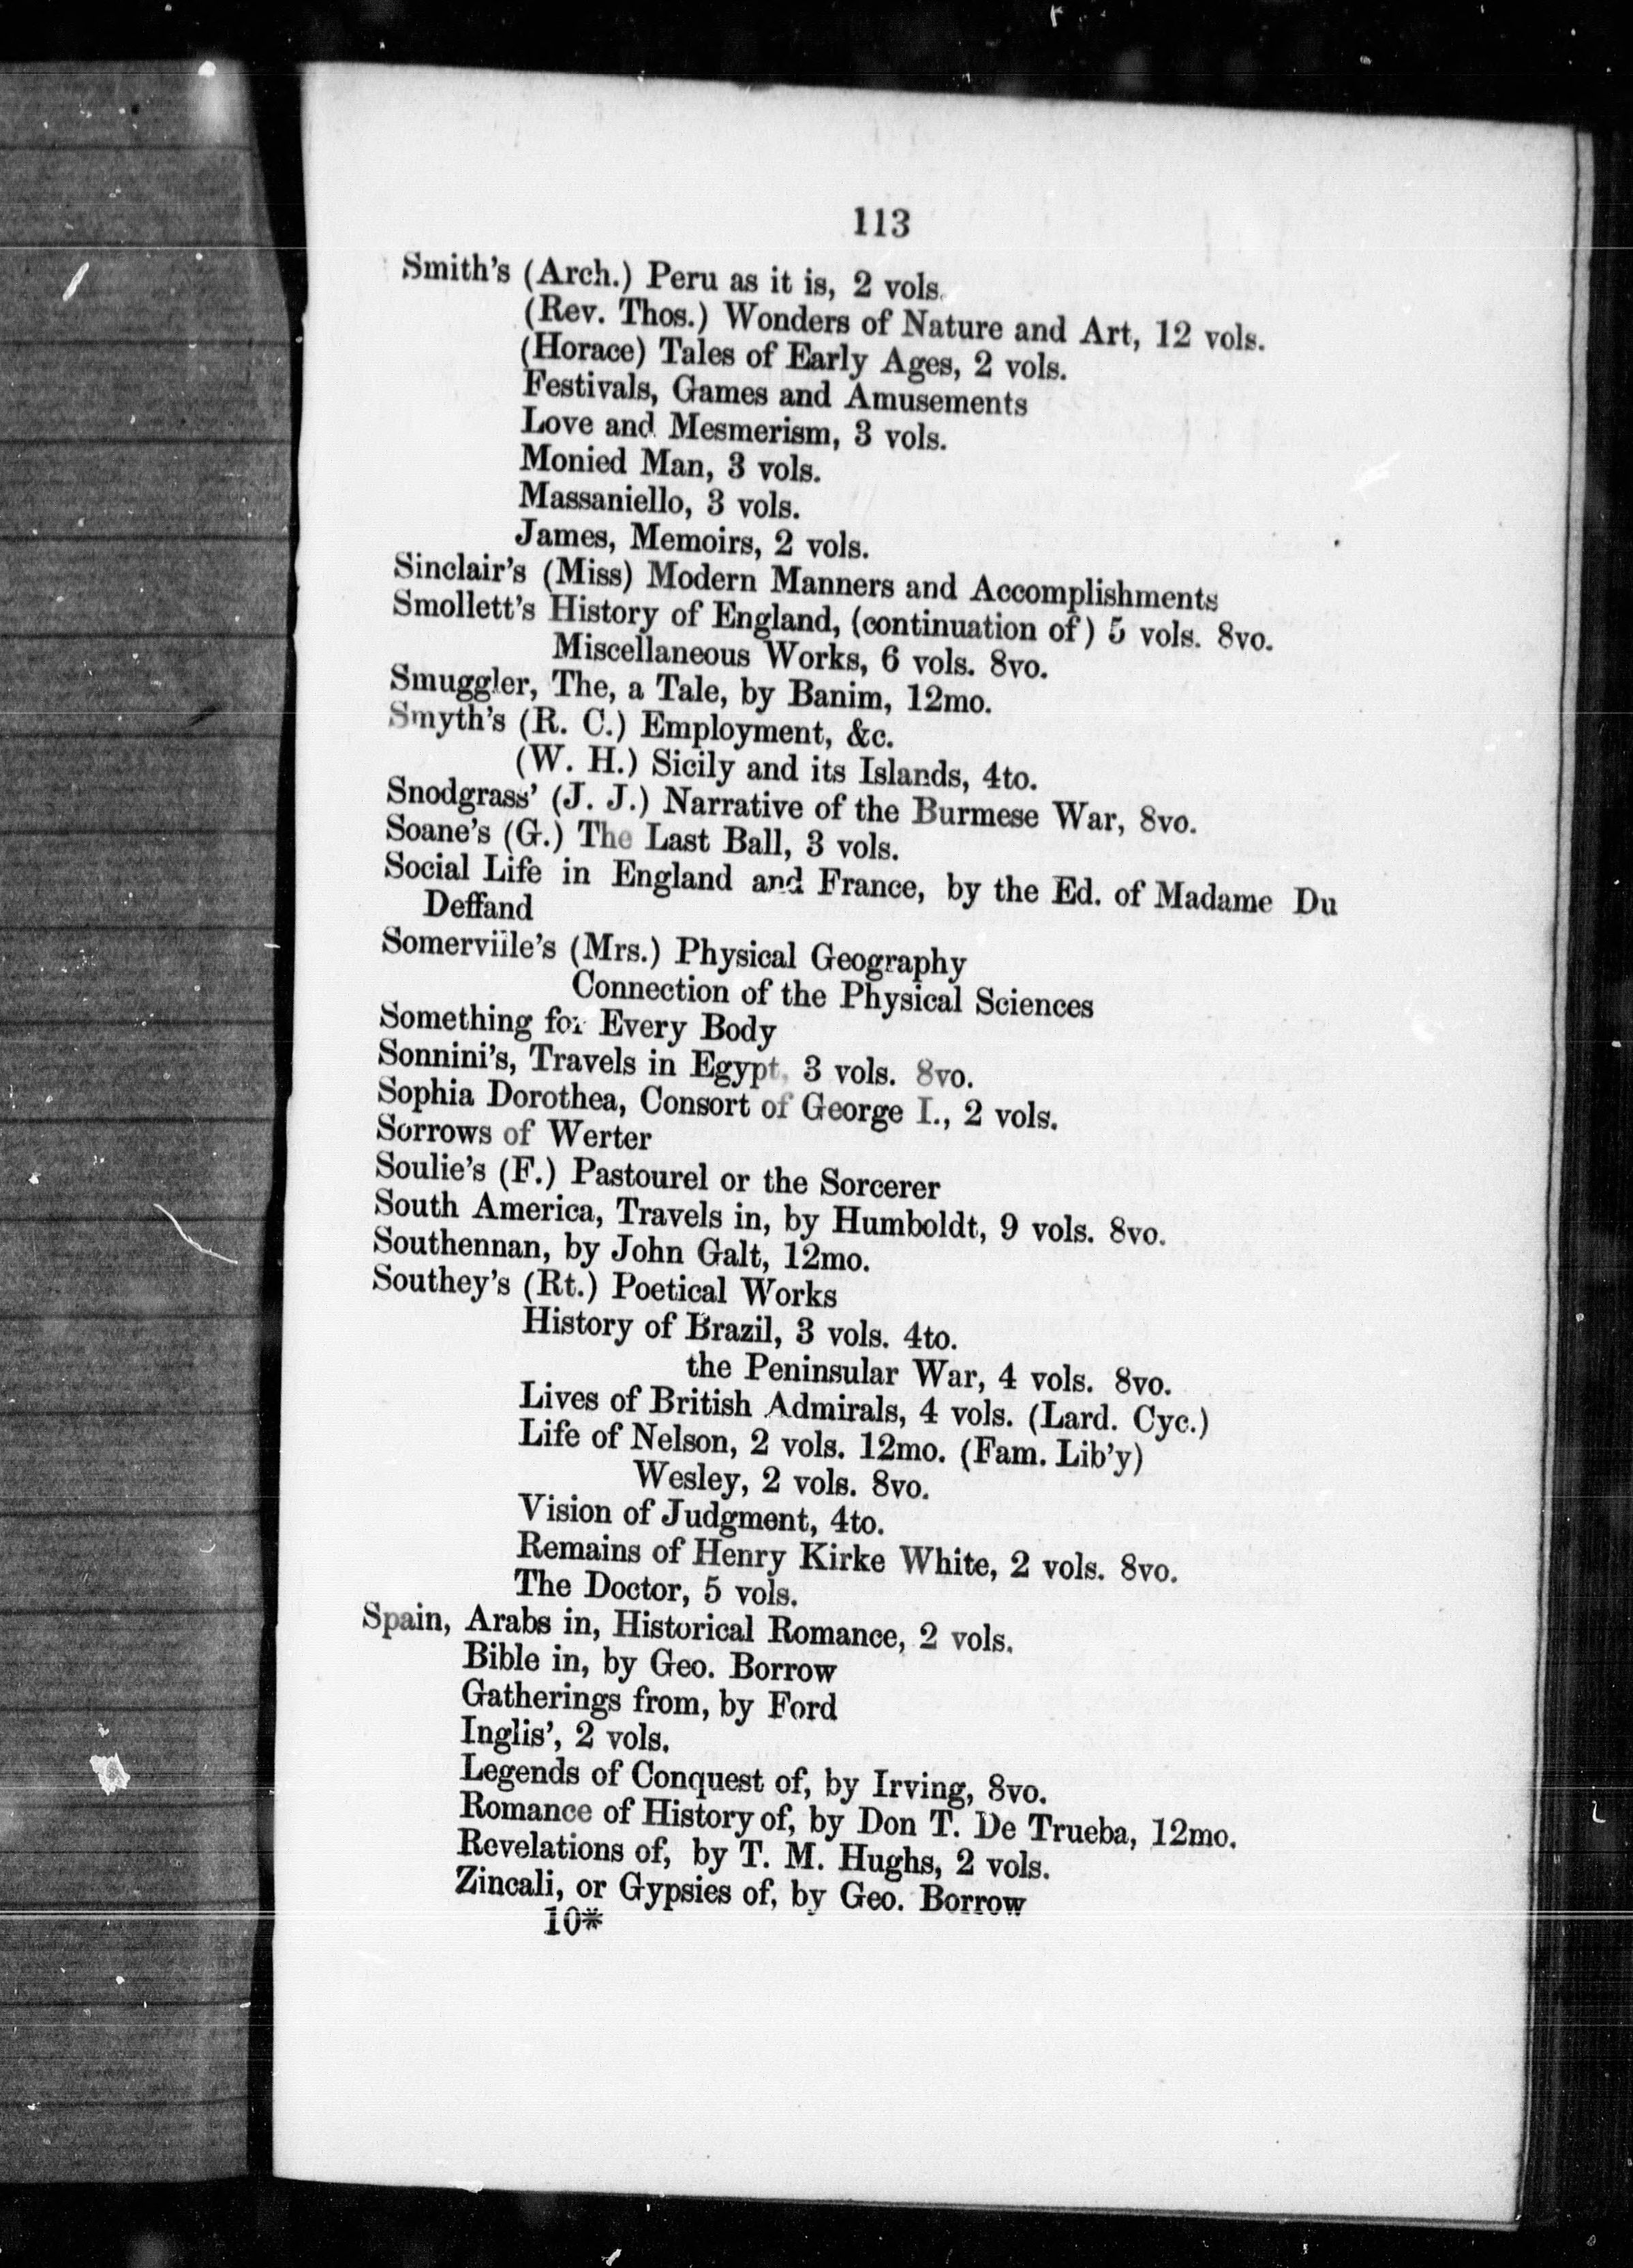 113
Smith's (Arch.) Peru as it is, 2 vols.
(Rev. Thos.) Wonders of Nature and Art, 12 vols.
(Horace) Tales of Early Ages, 2 vols.
Festivals, Games and Amusements
Love and Mesmerism, 3 vols.
Monied Man, 3 vols.
Massaniello, 3 vols.
James, Memoirs, 2 vols.
Sinclair's (Miss) Modern Manners and Accomplishments
Smollett's History of England, (continuation of) 5 vols. 8vo.
Miscellaneous Works, 6 vols. 8vo.
Smuggler, The, a Tale, by Banim, 12mo.
Smyth's (R. C.) Employment, &c.
(W. H.) Sicily and its Islands, 4to.
Snodgrass' (J. J.) Narrative of the Burmese War, 8vo.
Soane's (G.) The Last Ball, 3 vols.
Social Life in England and France, by the Ed. of Madame Du
Deffand
Somerviile's (Mrs.) Physical Geography
Connection of the Physical Sciences
Something for Every Body
Sonnini's, Travels in Egypt, 3 vols. 8vo.
Sophia Dorothea, Consort of George I., 2 vols.
Sorrows of Werter
Soulie's (F.) Pastourel or the Sorcerer
South America, Travels in, by Humboldt, 9 vols. 8vo.
Southennan, by John Galt, 12mo.
Southey's (Rt.) Poetical Works
History of Brazil, 3 vols. 4to.
the Peninsular War, 4 vols. 8vo.
Lives of British Admirals, 4 vols. (Lard. Cyc.)
Life of Nelson, 2 vols. 12mo. (Fam. Lib'y)
Wesley, 2 vols. 8vo.
Vision of Judgment, 4to.
Remains of Henry Kirke White, 2 vols. 8vo.
The Doctor, 5 vols.
Spain, Arabs in, Historical Romance, 2 vols.
Bible in, by Geo. Borrow
Gatherings from, by Ford
Inglis', 2 vols.
Legends of Conquest of, by Irving, 8vo.
Romance of History of, by Don T. De Trueba, 12mo.
Revelations of, by T. M. Hughs, 2 vols.
Zincali, or Gypsies of, by Geo. Borrow
10*